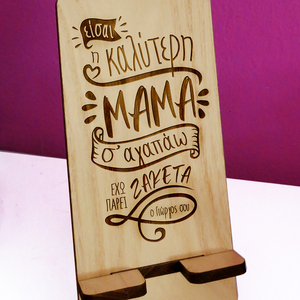 είσαι
η καλύτερη
ΜΑΜΑ
σ' αγαπάω
ΕΧΩ
ΠΑΡΕΙ ΖΑΚΕΤΑ
ο Γιώργος σου